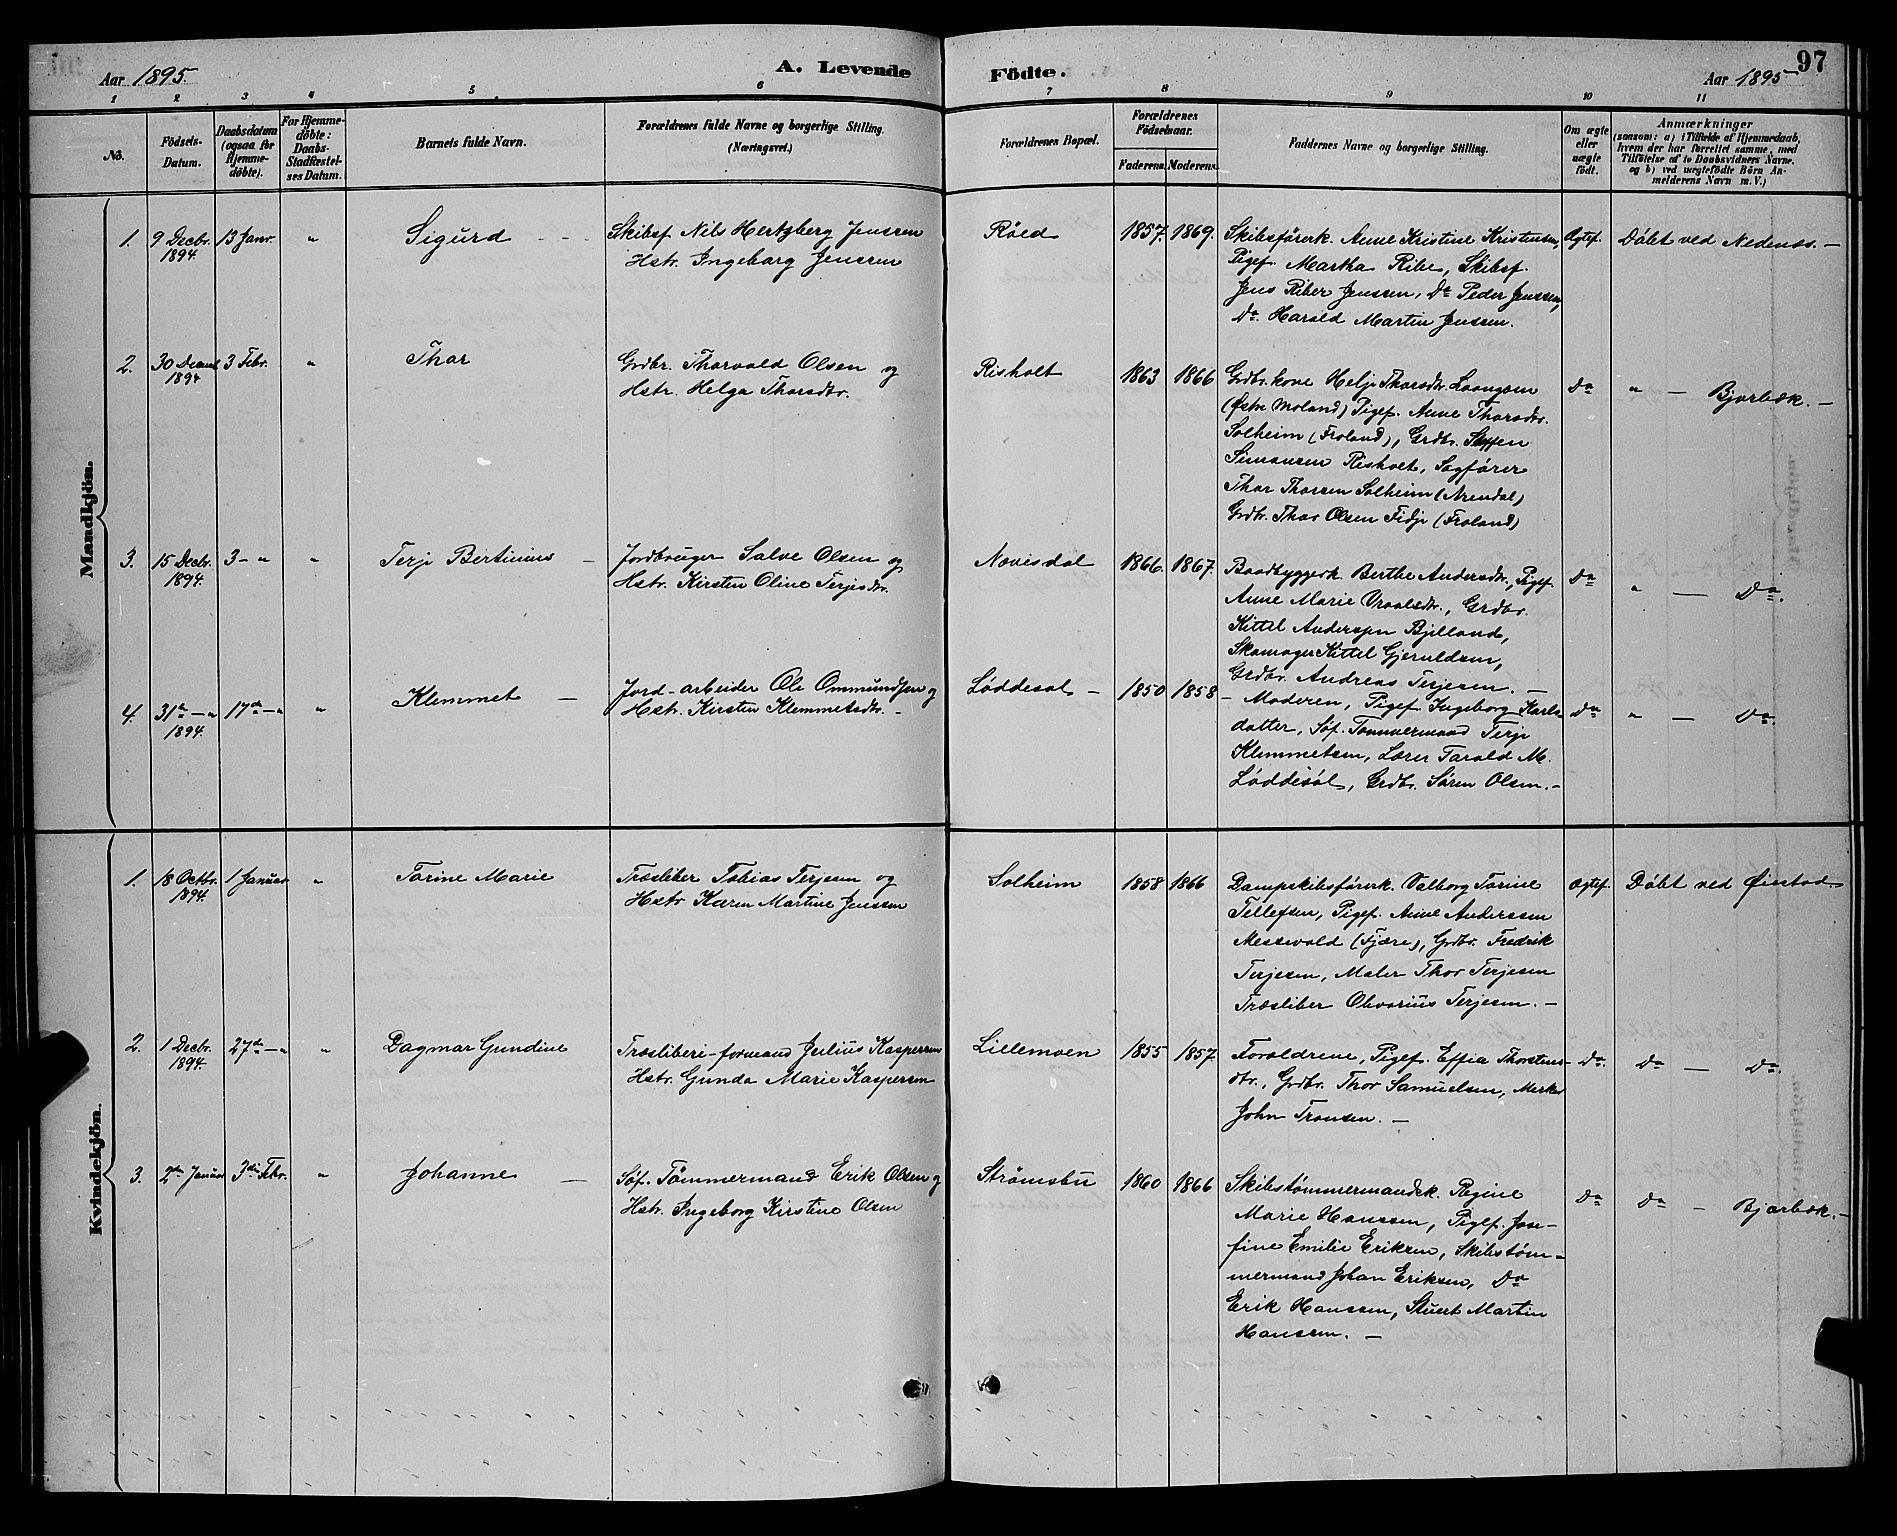 Aar 1895.
A. Levende
Födte.
Aar 1895
97
1 2 3 4 5 6 7 8 9 10 11
No.
Födsels-
Datum.
Daabsdatum
(ogsaa for
Hjemme-
döbte).
For Hjemme-
döbte:
Daabs-
Stadfæstel-
ses Datum.
Barnets fulde Navn.
Forældrenes fulde Navne og borgerlige Stilling.
(Næringsvei.)
Forældrenes Bopæl.
Forældrenes
Födselsaar.
Faderens. Moderens.
Faddernes Navne og borgerlige Stilling.
Om ægte
eller
uægte
födt.
Anmærkninger
(saasom: a) i Tilfælde af Hjemmedaab,
hvem der har forrettet samme, med
Tilföielse af to Daabsvidners Navne,
og b) ved uægtefödte Börn An-
melderens Navn m. V.)
Mandkjön.
1. 9 Decbr. 13 Janr. " Sigurd
1894.
Skibsf. Nils Hertzberg Jenssen
Hstr. Ingeborg Jenssen
Röed 1857. 1869.
Skibsförerk. Anne Kristine Kristensen,
Pigef. Martha Ribe, Skibsf.
Jens Riber Jenssen, Do Peder Jenssen,
Do. Harald Martin Jenssen.
Ægtef. Döbt ved Nedenæs. —
2. 30 Decemb 3 Febr. " Thor
1894
Grdbr. Thorvald Olsen og
Hstr. Helga Thorsdtr.
Risholt 1863 1866
Grdbr.kone Helje Thorsdtr. Laangom
(Östre Moland) Pigef. Anne Thorsdtr.
Solheim (Froland), Grdbr. Steffen
Simonsen Risholt, Sagförer
Thor Thorsen Solheim (Arendal)
Grdbr. Thor Olsen Fidje (Froland)
Do " — Bjorbæk. —
3. 15 Decbr. 3 - " " Terje Bertinius —
1894.
Jordbruger Salve Olsen og
Hstr. Kirsten Oline Terjesdtr.
Nævisdal 1866. 1867.
Baadbyggerk. Berthe Andersdtr., Pigef.
Anne Marie Vraalsdtr., Grdbr.
Kittel Andersen Bjelland,
Skomager Kittel Gjeruldsen,
Grdbr. Andreas Terjesen. —
Do " — Do.
4. 31te — " 17de — " " Klemmet —
1894.
Jord-arbeider Ole Ommundsen og
Hstr. Kirsten Klemmetsdtr. -
Løddesøl — 1850 1858 —
Moderen, Pigef. Ingeborg Karls-
datter, Söf. Tömmermand Terje
Klemmetsen, Lærer Tarald M.
Løddesöl, Grdbr. Sören Olsen. -
Do " — Do.
Kvindekjön.
1. 18 Octbr. 1 Januar " Torine Marie
1894.
Træsliber Tobias Terjesen og
Hstr Karen Martine Jenssen
Solheim 1858 1866
Dampskibsförerk. Valborg Torine
Tellefsen, Pigef. Anne Anderssen
Messevold (Fjære), Grdbr. Fredrik
Terjesen, Maler Thor Terjesen
Træsliber Olivarius Terjesen. —
Ægtef. Döbt ved Øiestad.
2. 1 Decbr. 27de — " " Dagmar Gundine
1894.
Træsliberi-formand Julius Kaspersen
Hstr. Gunda Marie Kaspersen
Lillemoen 1855 1857.
Forældrene, Pigef. Effia Thorstens-
dtr., Grdbr. Thor Samuelsen, Merker
John Tronsen. —
Do. Do — Do.
3. 2den Januar 3die Febr. " Johanne —
Söf. Tömmermand Erik Olsen og
Hstr. Ingeborg Kirstine Olsen
Strömsbu 1860 1866
Skibstømmermandsk. Regine
Marie Hanssen, Pigef. Jose-
fine Emilie Eriksen, Skibstøm-
mermand Johan Eriksen, Do
Erik Hanssen, Stuert Martin
Hanssen. —
Do Do — Bjorbæk. —